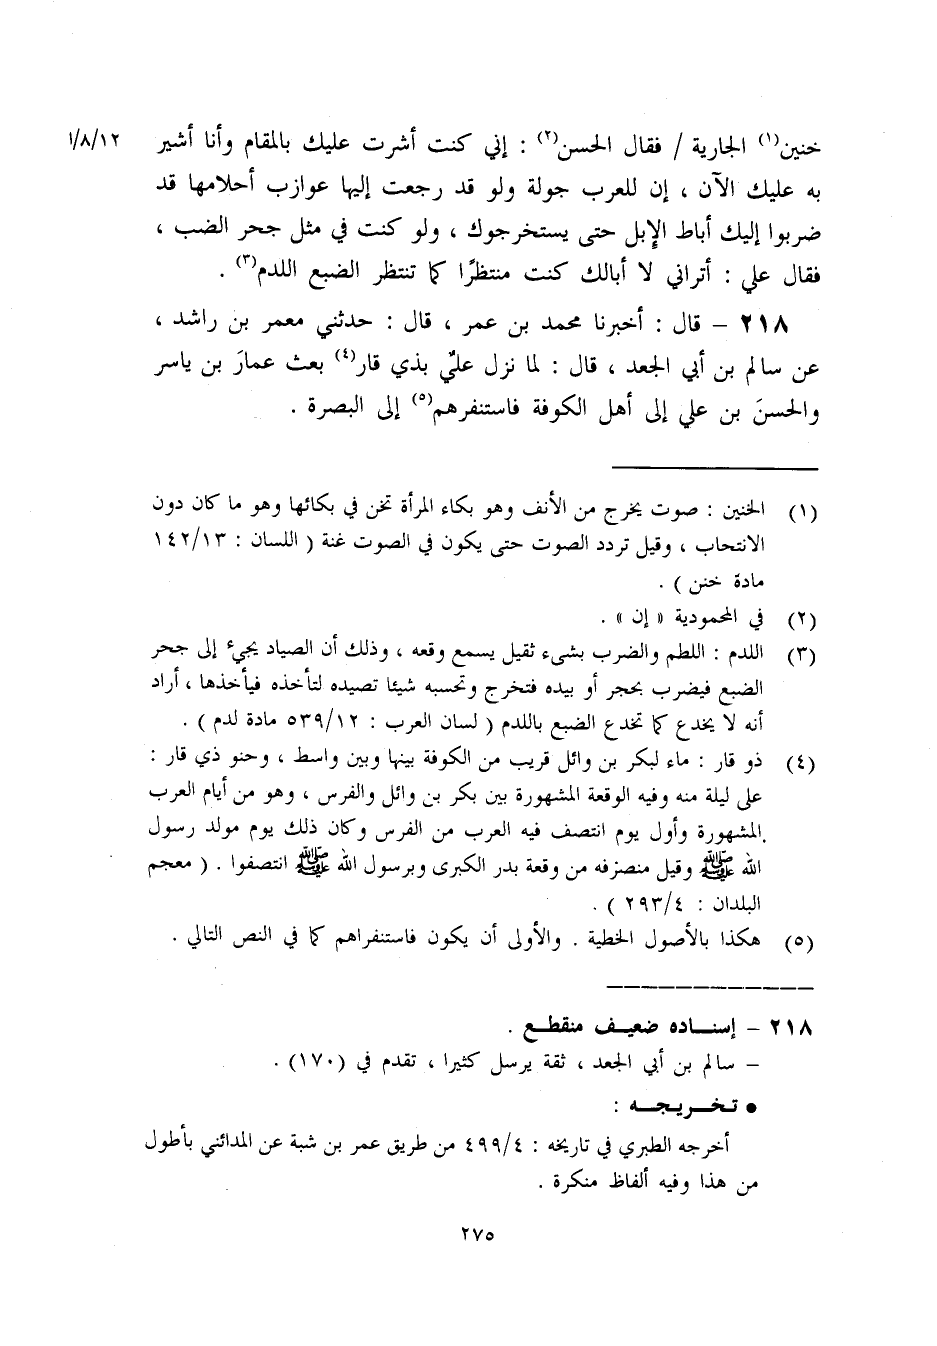 خنين(١) الجارية / فقال الحسن(٢) : إني كنت أشرت عليك بالمقام وأنا أشير ١/٨/١٢
به عليك الآن ، إن للعرب جولة ولو قد رجعت إليها عوازب أحلامها قد
ضربوا إليك أباط الإبل حتى يستخرجوك ، ولو كنت في مثل جحر الضب ،
فقال علي : أتراني لا أبالك كنت منتظرًا كما تنتظر الضبع اللدم(٣) .
٢١٨ – قال : أخبرنا محمد بن عمر ، قال : حدثني معمر بن راشد ،
عن سالم بن أبي الجعد ، قال : لما نزل عليٌ بذي قار(٤) بعث عمارَ بن ياسر
والحسنَ بن علي إلى أهل الكوفة فاستنفرهم(٥) إلى البصرة .
(١) الخنين : صوت يخرج من الأنف وهو بكاء المرأة تخن في بكائها وهو ما كان دون
الانتحاب ، وقيل تردد الصوت حتى يكون في الصوت غنة ( اللسان : ١٤٢/١٣
مادة خنن ) .
(٢) في المحمودية « إن » .
(٣) اللدم : اللطم والضرب بشيء ثقيل يسمع وقعه ، وذلك أن الصياد يجيء إلى جحر
الضبع فيضرب بحجر أو بيده فتخرج وتحسبه شيئا تصيده لتأخذه فيأخذها ، أراد
أنه لا يخدع كما تخدع الضبع باللدم ( لسان العرب : ٥٣٩/١٢ مادة لدم ) .
(٤) ذو قار : ماء لبكر بن وائل قريب من الكوفة بينها وبين واسط ، وحنو ذي قار :
على ليلة منه وفيه الوقعة المشهورة بين بكر بن وائل والفرس ، وهو من أيام العرب
المشهورة وأول يوم انتصف فيه العرب من الفرس وكان ذلك يوم مولد رسول
الله ﷺ وقيل منصرفه من وقعة بدر الكبرى وبرسول الله ﷺ انتصفوا . ( معجم
البلدان : ٢٩٣/٤ ) .
(٥) هكذا بالأصول الخطية . والأولى أن يكون فاستنفراهم كما في النص التالي .
٢١٨ – إسناده ضعيف منقطع .
– سالم بن أبي الجعد ، ثقة يرسل كثيرا ، تقدم في (١٧٠) .
• تخريجه :
أخرجه الطبري في تاريخه : ٤٩٩/٤ من طريق عمر بن شبة عن المدائني بأطول
من هذا وفيه ألفاظ منكرة .
٢٧٥